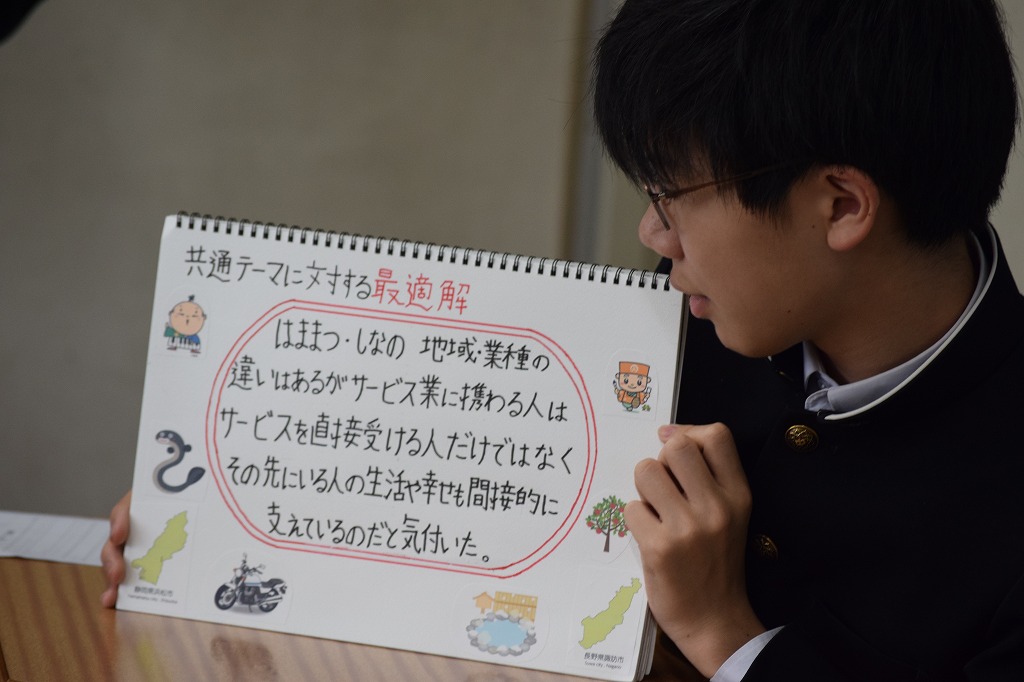 共通テーマに対する最適解
はままつ・しなの 地域・業種の
違いはあるがサービス業に携わる人は
サービスを直接受ける人だけではなく
その先にいる人の生活や幸せも間接的に
支えているのだと気付いた。
静岡県浜松市
Hamamatsu city, Shizuoka
長野県諏訪市
Suwa city, Nagano